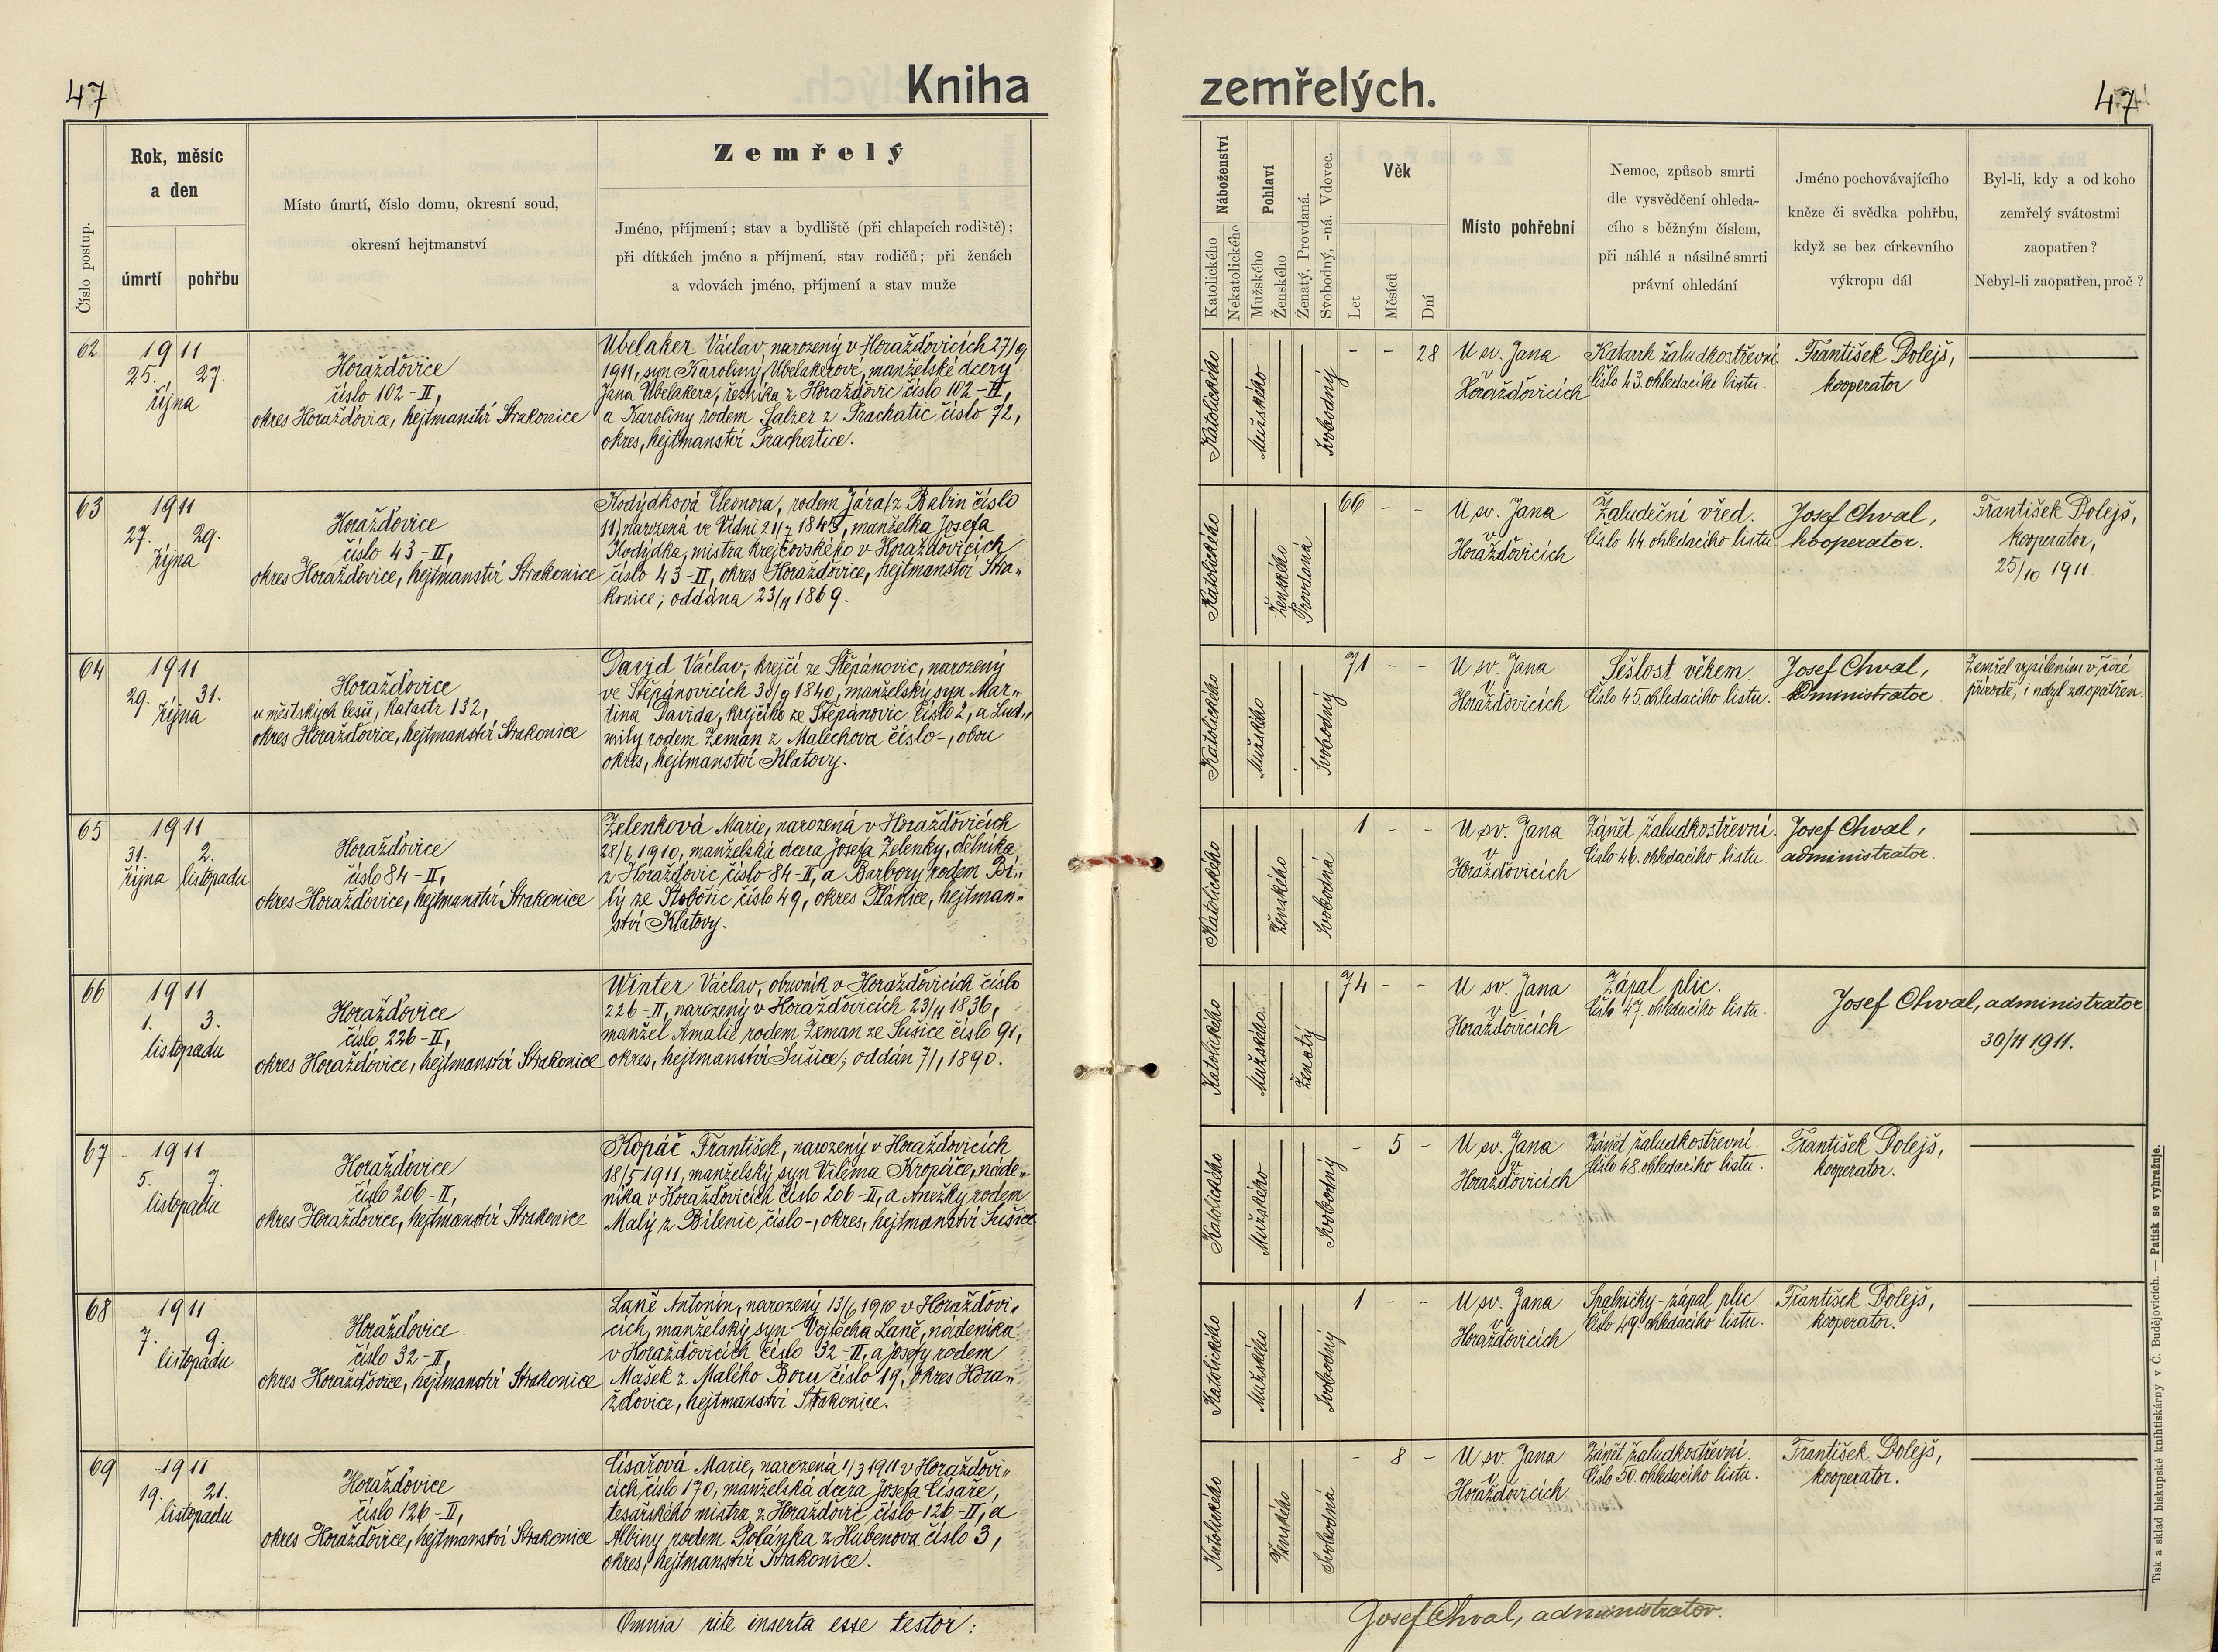 47
Kniha zemřelých.
47
Číslo postup.
Rok, měsíc
a den
úmrtí
pohřbu
Místo úmrtí, číslo domu, okresní soud,
okresní hejtmanství
Zemřelý
Jméno, příjmení; stav a bydliště (při chlapcích rodiště);
při dítkách jméno a příjmení, stav rodičů; při ženách
a vdovách jméno, příjmení a stav muže
Náboženství
Katolického
Nekatolického
Pohlaví
Mužského
Ženského
Ženatý, Provdaná.
Svobodný, -ná. Vdovec.
Věk
Let
Měsíců
Dní
Místo pohřební
Nemoc, způsob smrti
dle vysvědčení ohleda-
cího s běžným číslem,
při náhlé a násilné smrti
právní ohledání
Jméno pochovávajícího
kněze či svědka pohřbu,
když se bez církevního
výkropu dál
Byl-li, kdy a od koho
zemřelý svátostmi
zaopatřen?
Nebyl-li zaopatřen, proč?
62
1911
25. 27.
října
Horažďovice
číslo 102-II,
okres Horažďovice, hejtmanství Strakonice
Ubelaker Václav, narozený v Horažďovicích 27/9
1911, syn Karoliny Ubelakerové, manželské dcery
Jana Ubelakera, řezníka z Horažďovic číslo 102-II,
a Karoliny rodem Salzer z Prachatic číslo 72,
okres, hejtmanství Prachatice.
Katolického
Mužského
Svobodný
- - 28
U sv. Jana
v
Horažďovicích
Katarrh žaludkostřevní
číslo 43. ohledacího listu.
František Dolejš,
kooperator
63
1911
27. 29.
října
Horažďovice
číslo 43-II,
okres Horažďovice, hejtmanství Strakonice
Kodýdková Eleonora, rodem Jára z Babin číslo
11, narozená ve Vídni 21/7 1845, manželka Josefa
Kodýdka, mistra krejčovského v Horažďovicích
číslo 43-II, okres Horažďovice, hejtmanství Stra„
konice; oddána 23/11 1869.
Katolického
Ženského
Provdaná
66 - -
U sv. Jana
v
Horažďovicích
Žaludeční vřed.
číslo 44 ohledacího listu.
Josef Chval,
kooperator.
František Dolejš,
kooperator,
25/10 1911.
64
1911
29. 31.
října
Horažďovice
u městských lesů, katastr 132,
okres Horažďovice, hejtmanství Strakonice
David Václav, krejčí ze Štěpánovic, narozený
ve Štěpánovicích 30/9 1840, manželský syn Mar„
tina Davida, krejčího ze Štěpánovic číslo 2, a Lud„
mily rodem Zeman z Malechova číslo -, obou
okres, hejtmanství Klatovy.
Katolického
Mužského
Svobodný
71 - -
U sv. Jana
v
Horažďovicích
Sešlost věkem
číslo 45. ohledacího listu.
Josef Chval,
administrator.
Zemřel vysílením v širé
přírodě, i nebyl zaopatřen.
65
1911
31. 2.
října listopadu
Horažďovice
číslo 84-II,
okres Horažďovice, hejtmanství Strakonice
Zelenková Marie, narozená v Horažďovicích
28/6 1910, manželská dcera Josefa Zelenky, dělníka
z Horažďovic číslo 84-II, a Barbory rodem Bí„
lý ze Slobořic číslo 49, okres Plánice, hejtman„
ství Klatovy.
Katolického
Ženského
Svobodná
1 - -
U sv. Jana
v
Horažďovicích
Zánět žaludkostřevní.
číslo 46. ohledacího listu.
Josef Chval,
administrator.
66
1911
1. 3.
listopadu
Horažďovice
číslo 226-II,
okres Horažďovice, hejtmanství Strakonice
Winter Václav, obuvník v Horažďovicích číslo
226-II, narozený v Horažďovicích 23/11 1836,
manžel Amalie rodem Zeman ze Sušice číslo 91,
okres, hejtmanství Sušice; oddán 7/1 1890.
Katolického
Mužského
Ženatý
74 - -
U sv. Jana
v
Horažďovicích
Zápal plic.
číslo 47. ohledacího listu.
Josef Chval, administrator
30/11 1911.
67
1911
5. 7.
listopadu
Horažďovice
číslo 206-II,
okres Horažďovice, hejtmanství Strakonice
Kopáč František, narozený v Horažďovicích
18/5 1911, manželský syn Viléma Kropáče, náde„
níka v Horažďovicích číslo 206-II, a Anežky rodem
Malý z Bílenic číslo -, okres, hejtmanství Sušice
Katolického
Mužského
Svobodný
- 5 -
U sv. Jana
v
Horažďovicích
Zánět žaludkostřevní.
číslo 48. ohledacího listu.
František Dolejš,
kooperator.
68
1911
7. 9.
listopadu
Horažďovice
číslo 32-II,
okres Horažďovice, hejtmanství Strakonice
Laně Antonín, narozený 13/6 1910 v Horažďovi„
cích, manželský syn Vojtěcha Laně, nádeníka
v Horažďovicích číslo 32-II, a Josefy rodem
Mašek z Malého Boru číslo 19, okres Hora„
žďovice, hejtmanství Strakonice.
Katolického
Mužského
Svobodný
1 - -
U sv. Jana
v
Horažďovicích
Spalničky - zápal plic.
číslo 49. ohledacího listu.
František Dolejš,
kooperator.
69
1911
19. 21.
listopadu
Horažďovice
číslo 126-II,
okres Horažďovice, hejtmanství Strakonice
Císařová Marie, narozená 1/3 1911 v Horažďovi„
cích číslo 170, manželská dcera Josefa Císaře,
tesařského mistra z Horažďovic číslo 126-II, a
Albiny rodem Polánka z Hubenova číslo 3,
okres, hejtmanství Strakonice.
Katolického
Ženského
Svobodná
- 8 -
U sv. Jana
v
Horažďovicích
Zánět žaludkostřevní.
číslo 50. ohledacího listu.
František Dolejš,
kooperator.
Omnia rite inserta esse testor:
Josef Chval, administrator.
Tisk a sklad biskupské knihtiskárny v Č. Budějovicích. — Patisk se vyhražuje.